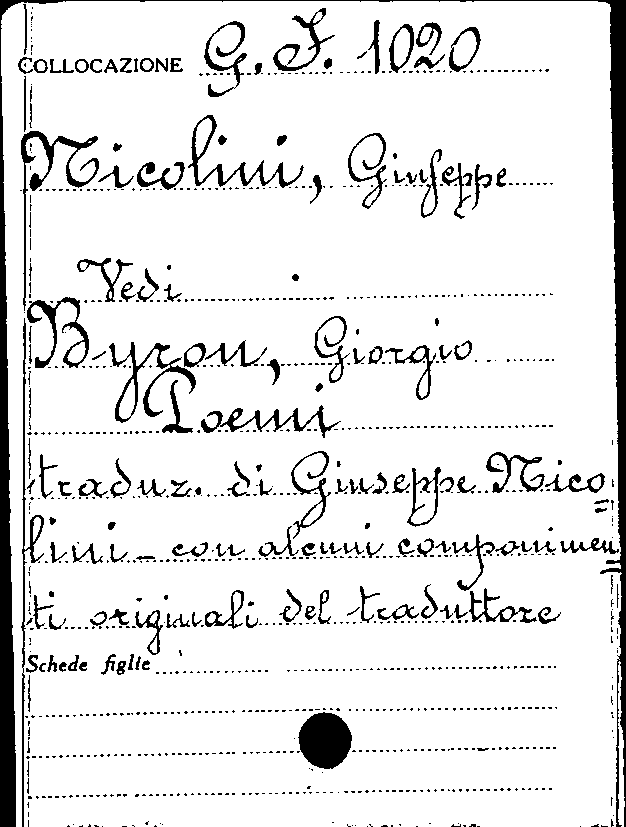 COLLOCAZIONE G. F. 1020
Nicolini, Giuseppe
Vedi
Byron, Giorgio
Poemi
traduz. di Giuseppe Nico=
lini - con alcuni componimen=
ti originali del traduttore
Schede figlie